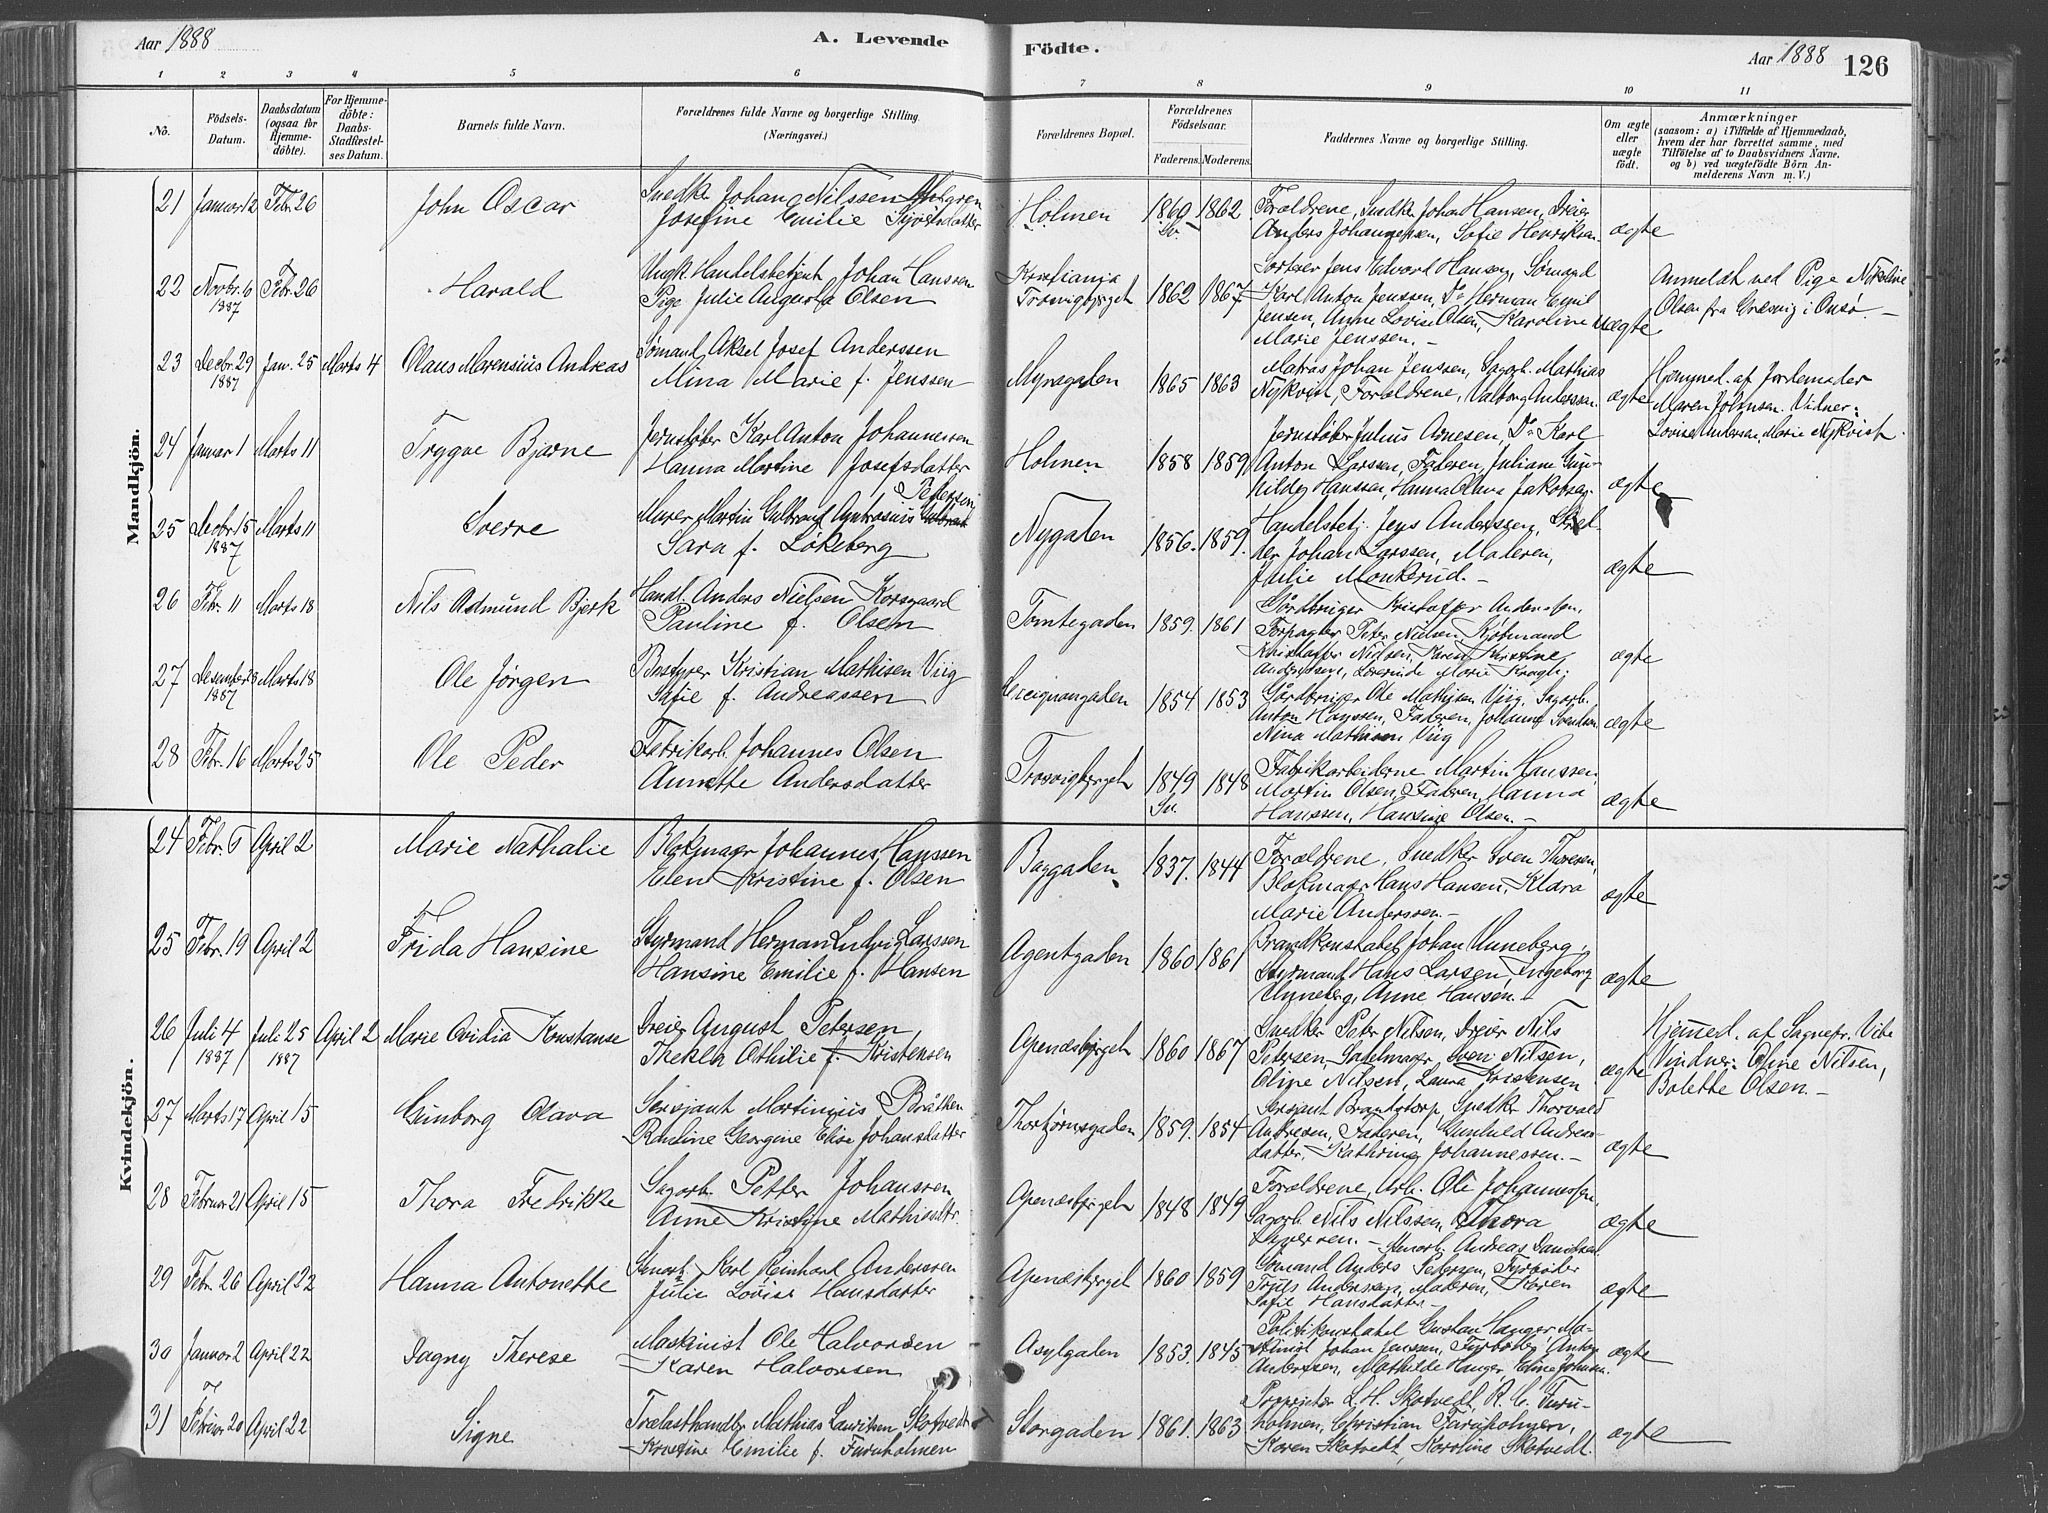 Aar 1888
A. Levende
Födte.
Aar 1888
126
1 2 3 4 5 6 7 8 9 10 11
No.
Födsels-Datum.
Daabsdatum (ogsaa for Hjemme-döbte).
For Hjemme-döbte: Daabs-Stadfæstelses Datum.
Barnets fulde Navn.
Forældrenes fulde Navne og borgerlige Stilling. (Næringsvei.)
Forældrenes Bopæl.
Forældrenes Födselsaar.
Faderens. Moderens.
Faddernes Navne og borgerlige Stilling.
Om ægte eller uægte födt.
Anmærkninger (saasom: a) i Tilfælde af Hjemmedaab, hvem der har forrettet samme, med Tilföielse af to Daabsvidners Navne, og b) ved uægtefödte Börn Anmelderens Navn m. V.)
Mandkjön.
21 Januar 12 Febr. 26 John Oscar
Snedk. Johan Nilssen
Josefine Emilie
Holmen 1860 Sv. 1862
Forældrene, Snedk. Johan Hansen, Dreier
Anders Johannessen, Sofie Henriksen
ægte
22 Novbr. 6 1887 Febr. 26 Harald
Ungk. Handelsbetjent Johan Hanssen
Pige Julie Augusta Olsen
Kristiania
Trosvigbjerget 1862 1867
Sorterer Jens Edvard Hansen, Sømand
Karl Anton Jenssen, Do Herman Emil
Jensen, Anne Lovise Olsen, Karoline
Marie Jenssen.
uægte
Anmeldt ved Pige Nikoline
Olsen fra Græsvig i Onsø.
23 Decbr. 29 1887 Jan. 25 Marts 4 Olaus Marensius Andreas
Sømand Aksel Josef Anderssen
Mina Marie f. Jenssen
Myragaden 1865 1863
Matias Johan Jenssen, Sagarb. Mathias
Nykvist, Forældrene, Valborg Anderssen.
ægte
Hjemmed. af Jordemoder
Maren Johnsen. Vidner:
Lovise Andersen, Marie Nykvist.
24 Januar 1 Marts 11 Trygve Bjarne
Jernstøber Karl Anton Johannessen
Hanna Martine Josefsdatter
Holmen 1858 1859
Jernstøber Julius Arnesen, Do Karl
Anton Larssen, Faderen, Juliane Gun-
hilde Hanssen, Hanna Olava Jakobsen.
ægte
25 Decbr. 15 1887 Marts 11 Sverre
Petersen
Murer Martin Gulbrand Ambrosius
Sara f. Løkeberg
Nygaden 1856. 1859.
Handelsbetj. Jens Anderssen, Skræd-
der Johan Larssen, Moderen,
Julie Monkerud.
ægte
26 Febr. 11 Marts 18 Nils Admund Bjerk
Handl. Anders Nielsen Korsgaard
Pauline f. Olsen
Tomtegaden 1859. 1861
Gårdbruger Kristoffer Anderssen,
Forpagter Peter Nielsen, Kjøbmand
Kristoffer Nielsen, Karen Kristine
Anderssen, Lærerinde Marie Krogh.
ægte
27 Desember 28 1887 Marts 18 Ole Jörgen
Bestyrer Kristian Mathisen Viig
Sofie f. Andreassen
Cicignongaden 1854. 1853
Gårdbruger Ole Mathisen Viig, Sagarb.
Anton Hanssen, Faderen, Johanne Svendsen
Nina Mathisen Viig
ægte
28 Febr. 16 Marts 25 Ole Peder
Fabrikarb. Johannes Olsen
Annette Andersdatter
Trosvigbjerget 1849 Sv. 1848
Fabrikarbeiderne Martin Hanssen,
Martin Olsen, Faderen, Hanna
Hanssen, Hansine Olsen.
ægte
Kvindekjön.
24 Febr. 6 April 2 Marie Nathalie
Blokmager Johannes Hanssen
Elen Kristine f. Olsen
Baggaden 1837. 1844
Forældrene, Snedker Sven Thoresen,
Blokmager Hans Hansen, Klara
Marie Anderssen.
ægte
25 Febr. 19 April 2 Frida Hansine
Styrmand Herman Ludvig Larssen
Hansine Emilie f. Hansen
Agentgaden 1860 1861
Brandkonstabel Johan Unneberg,
Styrmand Hans Larsen, Ingeborg
Unneberg, Anne Hansen.
ægte
26 Juli 4 1887 Juli 25 1887 April 2 Marie Ovidia Konstanse
Dreier August Petersen,
Thekla Othilie f. Kristensen
Apenæsbjerget 1860 1867
Snedker Peter Nilsen, Dreier Nils
Petersen, Sadelmager Sven Nilsen,
Oline Nilsen, Laura Kristensen
ægte
Hjemmed. af Sognepr. Vibe
Vindner: Oline Nilsen,
Bolette Olsen.
27 Marts 17 April 15 Gunborg Olava
Sersjant Martinius Bråthen
Pauline Georgine Elise Johansdatter
Thorbjørnsgaden 1859. 1854
Sersjant Brandstorp, Snedker Thorvald
Andresen, Faderen, Gunhild Andreas-
datter, Kathrine Johannessen.
ægte
28 Februar 21 April 15 Thora Fredrikke
Sagarb. Petter Johanssen
Anne Kristine Mathiasdtr.
Apenæsbjerget 1848 1849
Forældrene, Arb. Ole Johannessen,
Sagarb. Nils Nilssen, Thora
ægte
29 Febr. 26 April 22 Hanna Antonette
Karl Reinhard Anderssen
Julie Lovise Hansdatter
Apenæsbjerget 1860 1859
Andreas Danielsen
Sømand Anders Pedersen, Fyrbøder
Truls Anderssen, Moderen, Karen
Sofie Hansdatter
ægte
30 Januar 2 April 22 Dagny Therese
Maskinist Ole Halvorsen
Karen Halvorsen
Asylgaden 1853. 1845
Politikonstabel Gustav Hanger, Ma-
skinist Johan Jenssen, Fyrbøder Anton
Anderssen, Mathilde Hanger, Eline Johnsen.
ægte
31 Februar 20 April 22 Signe
Trælasthandler Mathias Lauritsen Skotvedt
Kristine Emilie f. Furuholmen
Storgaden 1861. 1863
Proprietær L. H. Skotvedt, R. C. Furu-
holmen, Christian Furuholmen,
Karen Skotvedt, Karoline Skotvedt.
ægte